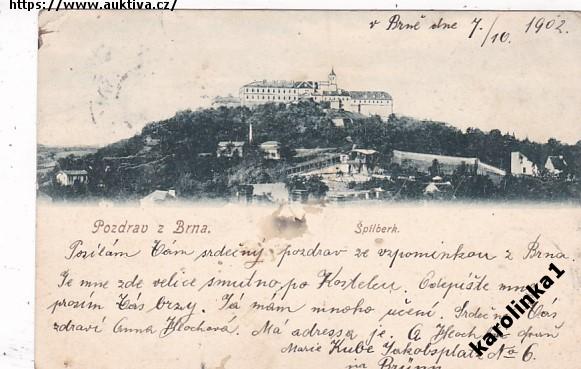 https://www.auktiva.cz/
v Brně dne 7./10. 1902.
Pozdrav z Brna.
Špilberk.
Posílám Vám srdečný pozdrav ze vzpomínkou z Brna
Je mne zde velice smutno po Kostelci. Odepište mně
prosím Vás brzy. Já mám mnoho učení. Srdečně Vás
zdraví Anna Hlochova. Má adressa je. A Hloch
Marie Kube Jakobsplatz No 6.
na Brünn
karolinka1